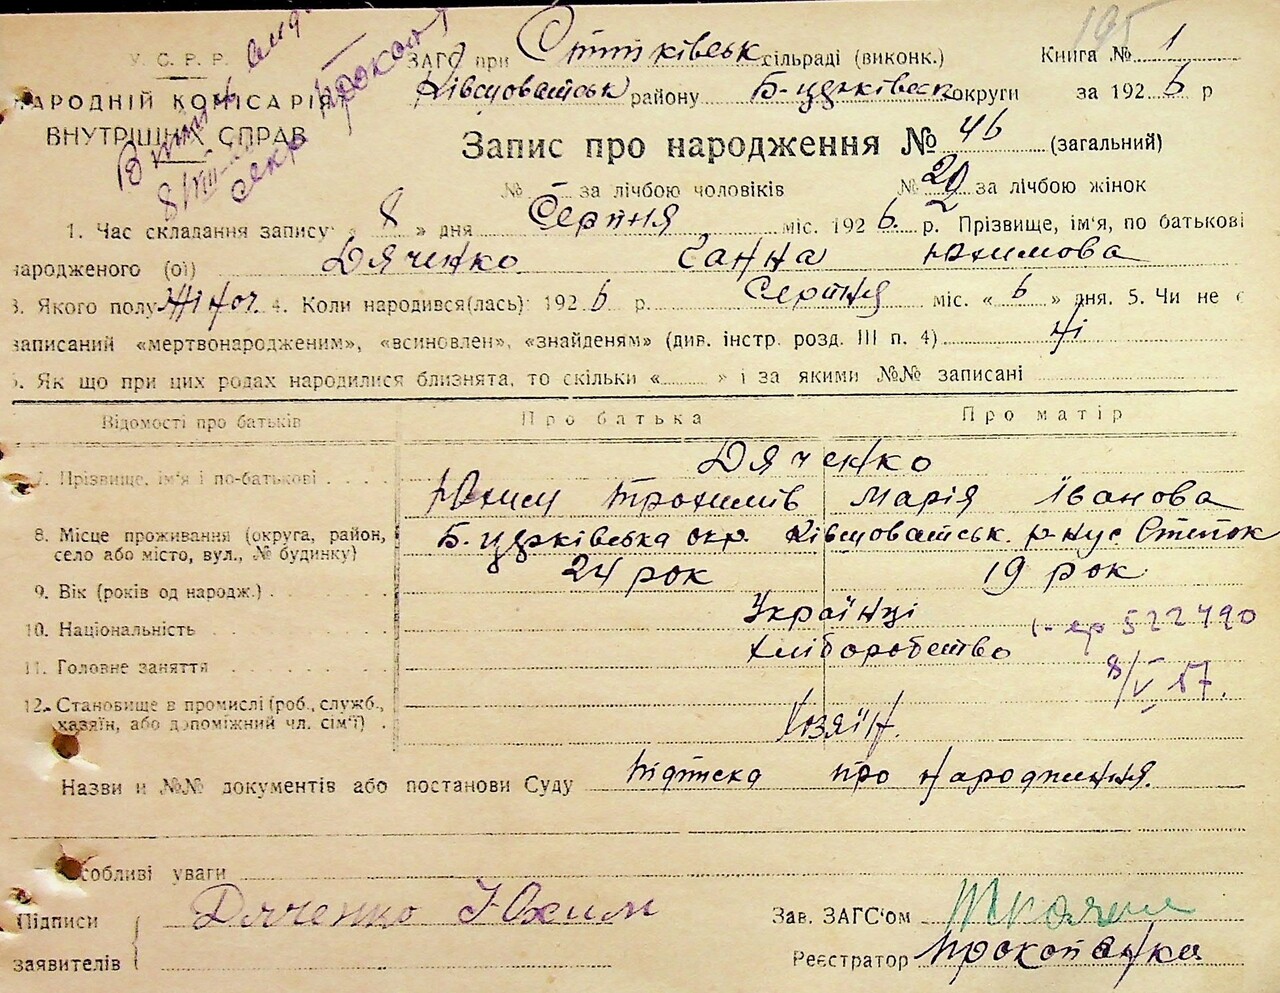 195
У. С. Р. Р.
НАРОДНІЙ КОМІСАРІЯТ
ВНУТРІШНІХ СПРАВ
8/VIII
ЗАГС при сільраді (виконк.) Книга № 1
району Б-церківськ округи за 1926 р
Запис про народження № 46 (загальний)
№ — за лічбою чоловіків № 20 за лічбою жінок
1. Час складання запису: « 8 » дня Серпня міс. 1926 р. 2. Прізвище, ім'я, по батькові
народженого (ої) Дяченко Ганна Юхимова
3. Якого полу Жіноч. 4. Коли народився(лась): 1926 р. Серпня міс. « 6 » дня. 5. Чи не є
записаний «мертвонародженим», «всиновлен», «знайденям» (див. інстр. розд. III п. 4) Ні
6. Як що при цих родах народилися близнята, то скільки « » і за якими №№ записані
Відомості про батьків Про батька Про матір
Дяченко
7. Прізвище, ім'я і по-батькові Юхим Трохимів Марія Іванова
8. Місце проживання (округа, район, село або місто, вул., № будинку) Б-церківська окр.
9. Вік (років од народж.) 24 рок 19 рок
10. Національність Українці
522490
11. Головне заняття Хліборобство
8/V 57.
12. Становище в промислі (роб., служб., хазяїн, або допоміжний чл. сім'ї) Хозяїн.
Назви и №№ документів або постанови Суду про народження.
Особливі уваги
Підписи Дяченко Юхим Зав. ЗАГС'ом
заявителів Реєстратор